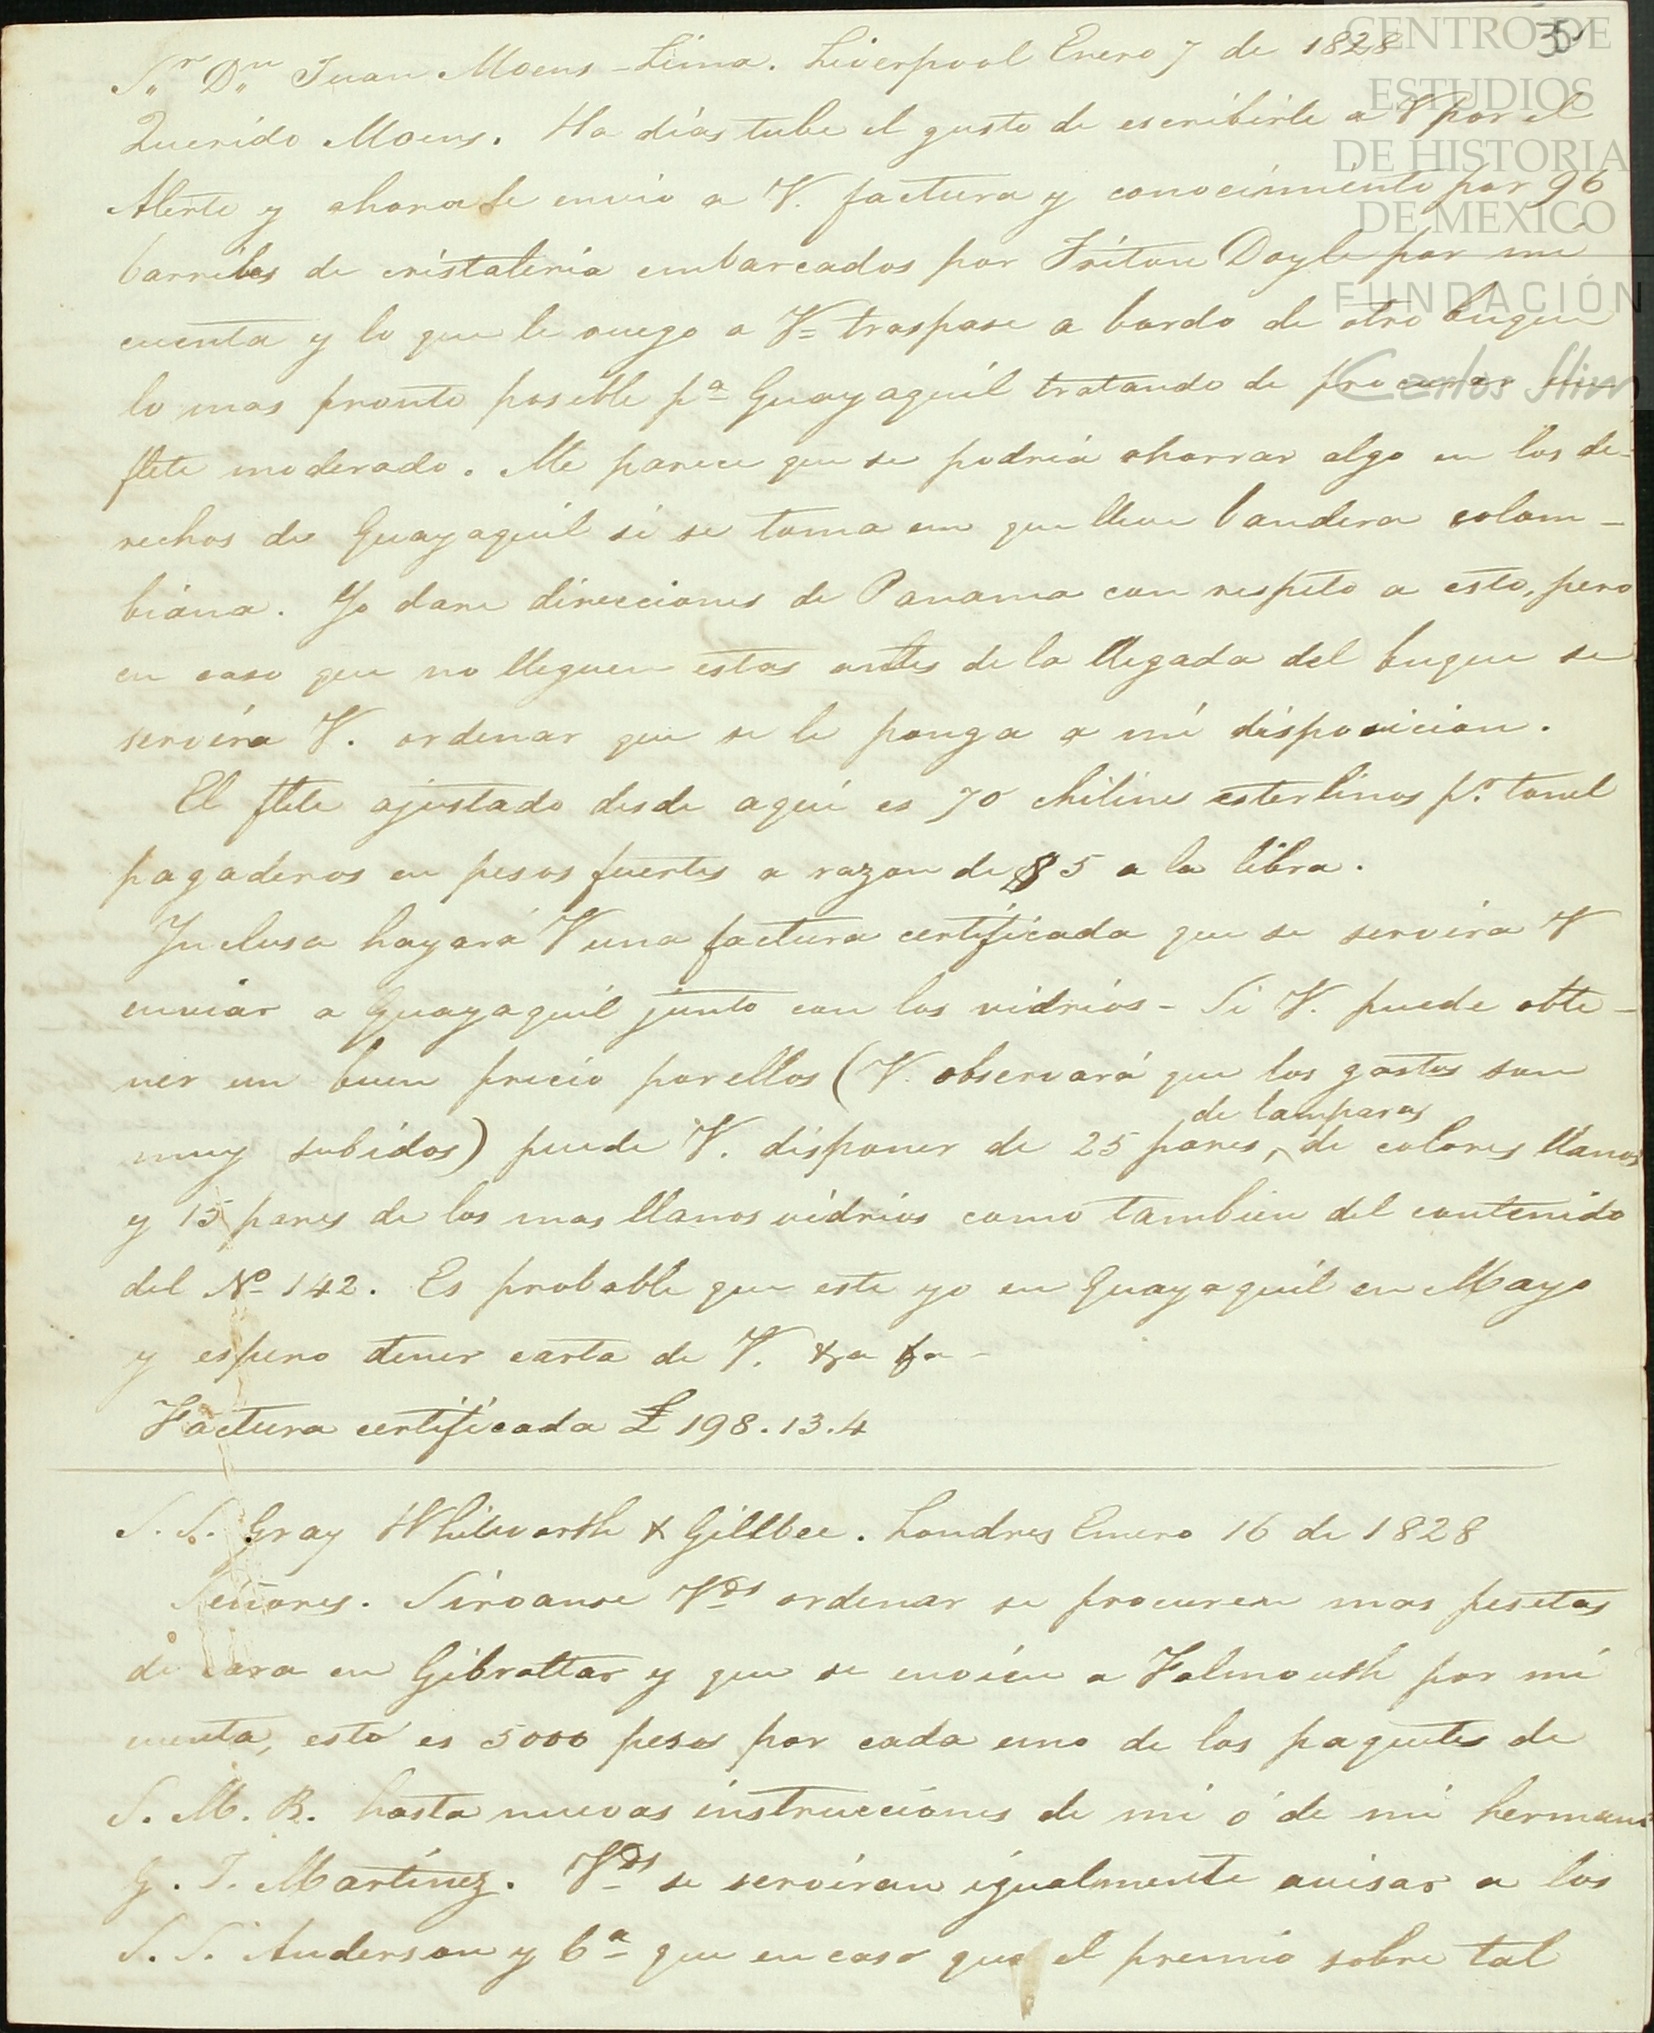 35
CENTRO DE
ESTUDIOS
DE HISTORIA
DE MEXICO
FUNDACIÓN
Carlos Slim
Sr. Dn. Juan Moens - Lima. Liverpool Enero 7 de 1828
Querido Moens. Ha días tube el gusto de escribirle a V por el
Alerte y ahora le envio a V. factura y conocimiento por 96
barriles de cristaleria embarcados por Triton Doyle por mi
cuenta y lo que le ruego a V. traspase a bordo de otro buque
lo mas pronto posible pa Guayaquil tratando de procurar un
flete moderado. Me parece que se podria ahorrar algo en los de-
rechos de Guayaquil si se toma uno que lleve bandera colom-
biana. Yo dare direcciones de Panama con respeto a esto, pero
en caso que no lleguen estas antes de la llegada del buque se
servira V. ordenar que se le ponga a mi disposicion.
El flete ajustado desde aqui es 70 chilines esterlinos pr. tonel
pagaderos en pesos fuertes a razon de $5 a la libra.
Inclusa hayará V una factura certificada que se servira V
enviar a Guayaquil junto con los vidrios - Si V. puede obte-
ner un buen precio por ellos (V. observará que los gastos son
muy subidos) puede V. disponer de 25 pares, de lamparas de colores llanos
y 15 pares de los mas llanos vidrios como tambien del contenido
del No 142. Es probable que este yo en Guayaquil en Mayo
y espero tener carta de V. &a &a -
Factura certificada £ 198.13.4
S. S. Gray Whitworth & Gillbee. Londres Enero 16 de 1828
Señores. Sirvanse Vds ordenar se procuren mas pesetas
de cara en Gibraltar y que se envien a Falmouth por mi
cuenta, esto es 5000 pesos por cada uno de los paquetes de
S. M. B. hasta nuevas instrucciones de mi ó de mi hermano
G. I. Martinez. Vds se serviran igualmente avisar a los
S. S. Anderson y Ca que en caso que el premio sobre tal